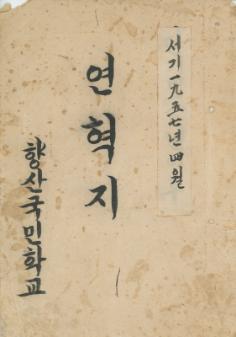 서기一九五七년四월
연혁지
향산국민학교